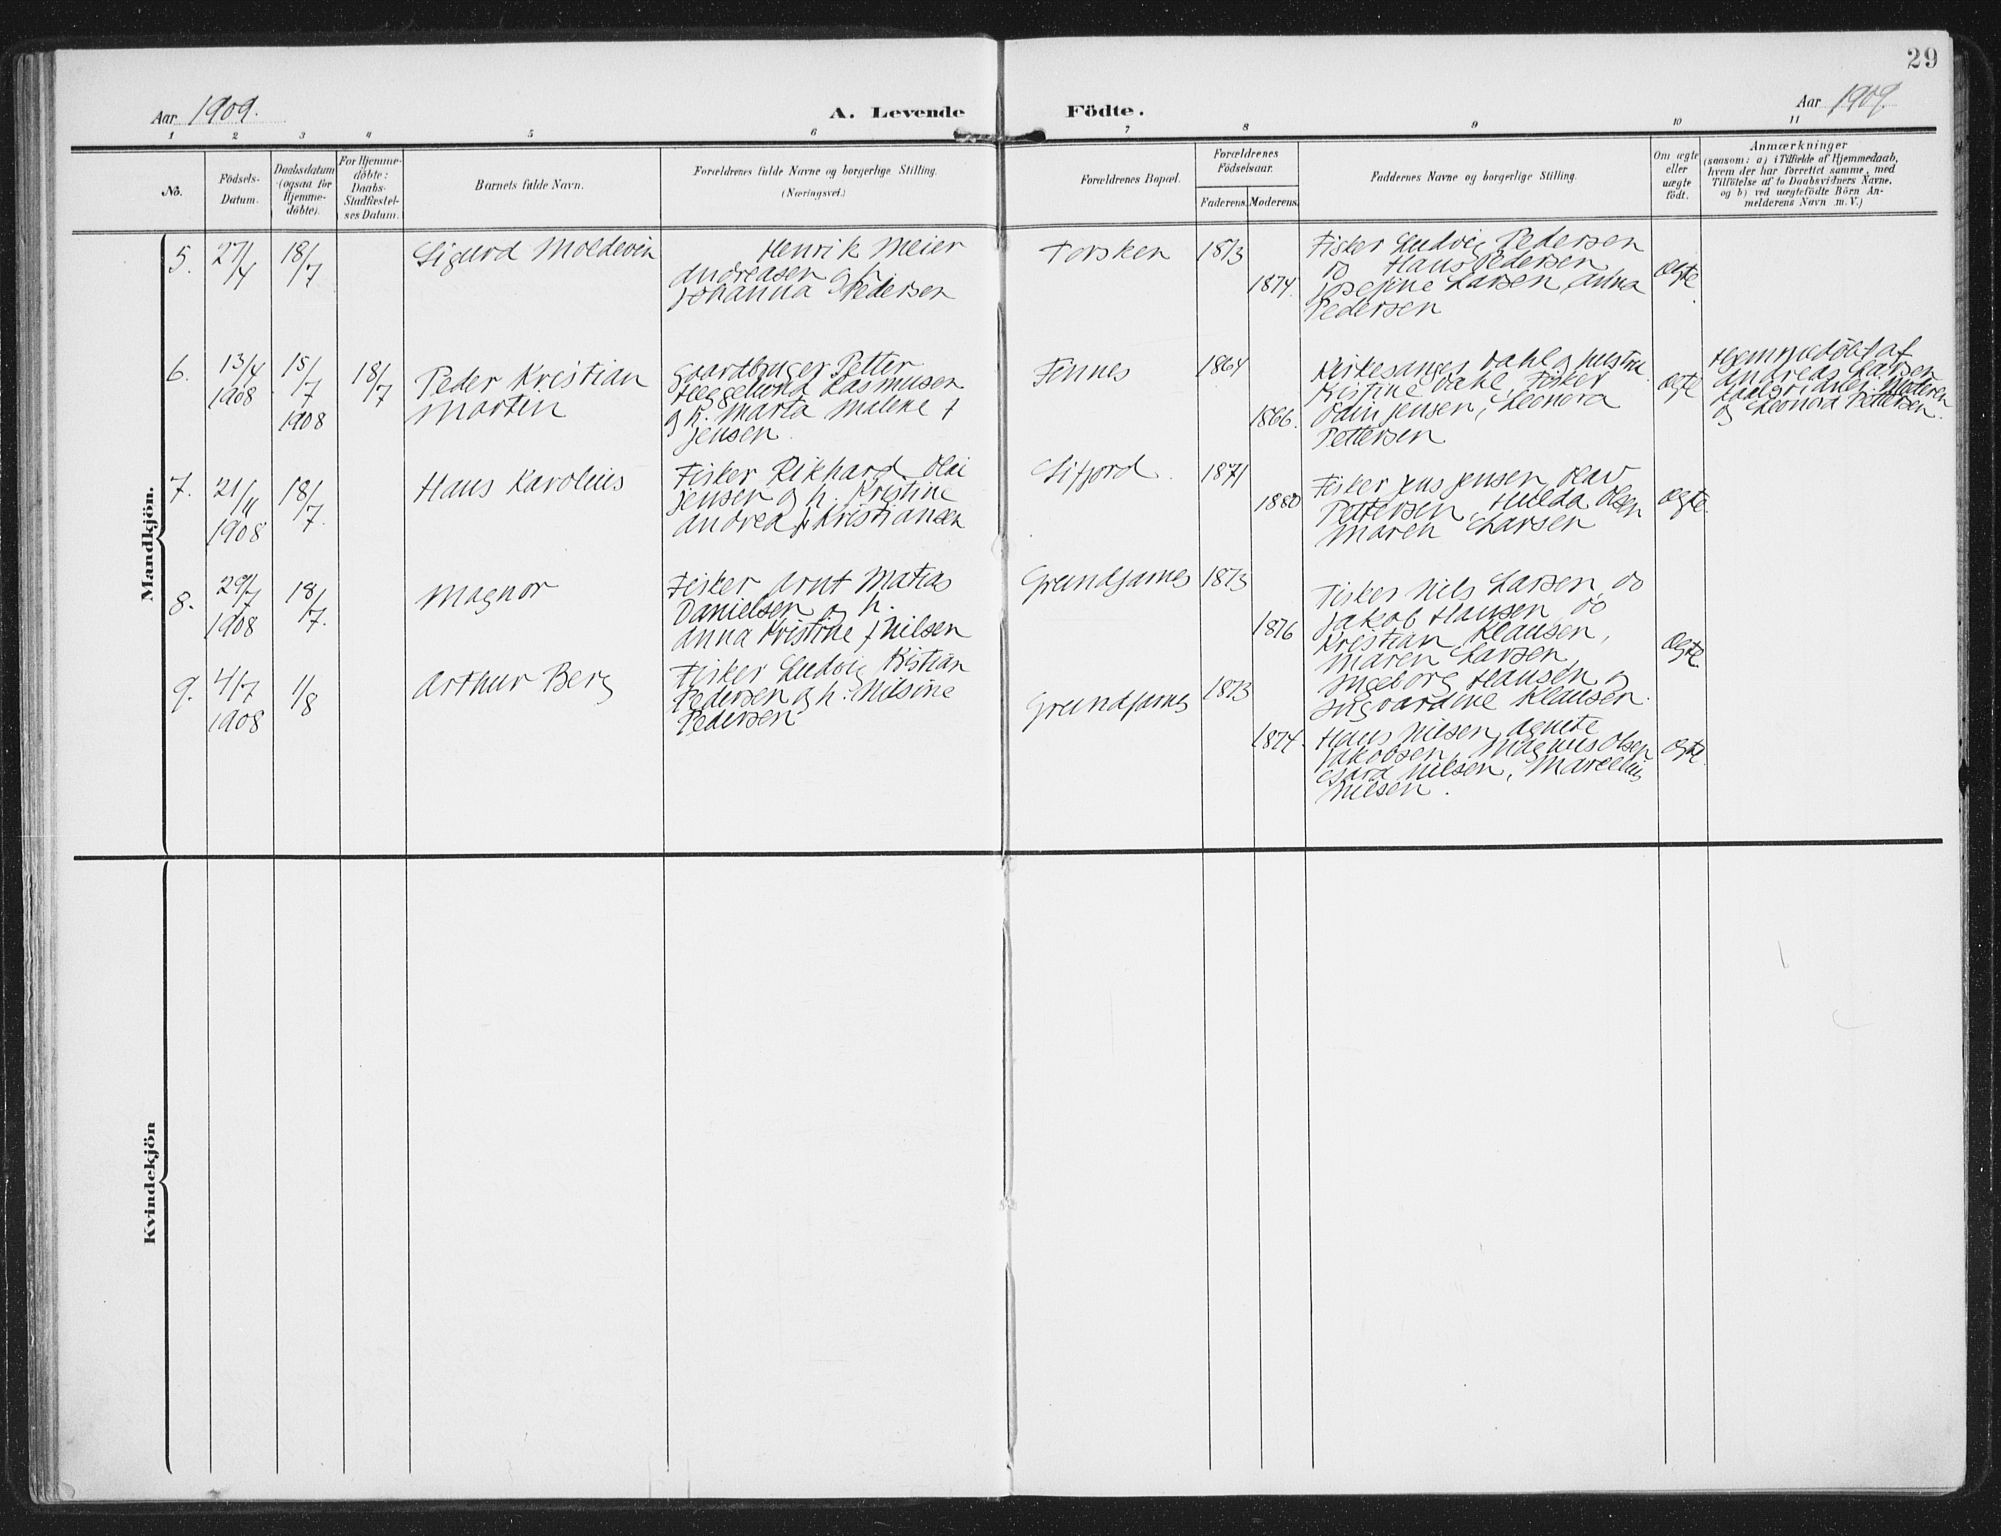 29
Aar 1909.
A. Levende Födte.
Aar 1909.
1 2 3 4 5 6 7 8 9 10 11
No.
Födsels-
Datum.
Daabsdatum
(ogsaa for
Hjemme-
döbte).
For Hjemme-
döbte:
Daabs-
Stadfæstel-
ses Datum.
Barnets fulde Navn.
Forældrenes fulde Navne og borgerlige Stilling.
(Næringsvei.)
Forældrenes Bopæl.
Forældrenes
Födselsaar.
Faderens. Moderens.
Faddernes Navne og borgerlige Stilling.
Om ægte
eller
uægte
födt.
Anmærkninger
(saasom: a) i Tilfælde af Hjemmedaab,
hvem der har forrettet samme, med
Tilföielse af to Daabsvidners Navne,
og b) ved uægtefödte Börn An-
melderens Navn m. V.)
Mandkjön.
5.
27/4
18/7
Sigurd Moldevin
Henrik Meier
Andreasen og h.
Johanna Pedersen
Torsken
1873
1874.
Fisker Ludvig Pedersen
do Hans Pedersen
Josefine Larsen, Anna
Pedersen
Ægte.
6.
13/4
1908
15/7
1908
18/7
Peder Kristian
Martin
Gaardbruger Petter
Heggelund Rasmusen
og h. Marta Malene f
Jensen.
Finnes
1864
1866.
Kirkesanger Dahl og hustru
Kristine Dahl, Fisker
Odin Jensen, Leonora
Pettersen
Ægte
Hjemmedöbt af
Andreas Larsen
Moderen
og Leonora Pettersen.
7.
21/11
1908
18/7.
Hans Karolius
Fisker Rikhard Olai
Jensen og h. Kristine
Andrea f. Kristiansen
Sifjord.
1871
1880
Fisker Jens Jensen, Olav
Pettersen, Hulda Olsen
Maren Larsen
Ægte.
8.
29/7
1908
18/7.
Magnor
Fisker Arnt Matias
Danielsen og h.
Anna Kristine f Nilsen
Grundfarnes
1873
1876
Fisker Nils Larsen, do
Jakob Hansen do
Kristian Klausen,
Maren Larsen,
Ingeborg Hansen og
Ingvardine Klausen.
Ægte
9.
4/7
1908
1/8
Arthur Berg
Fisker Ludvig Kristian
Pedersen og h. Nilsine
Pedersen
Grundfarnes
1873
1874.
Hans Nilsen, Agnete
Jakobsen, Magnus Olsen
Nilsen, Marcelius
Nilsen.
Ægte.
Kvindekjön